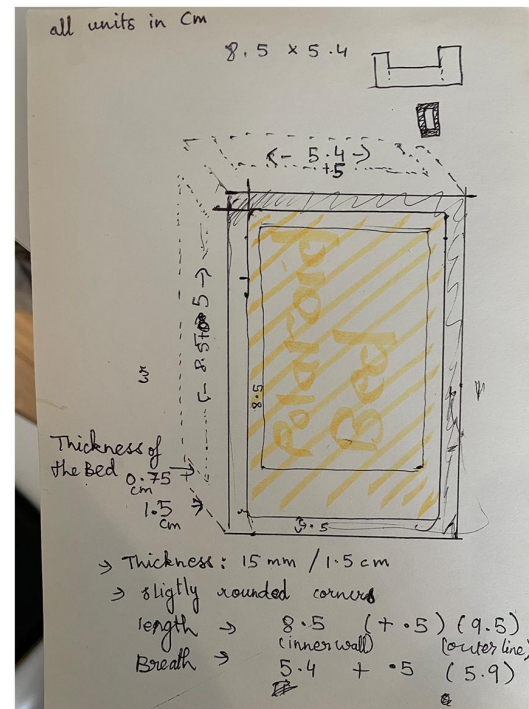 all units in Cm
8.5 x 5.4
<- 5.4 ->
+5
<- 8.5+ 5 ->
Polaroid
Bed
8.5
5.5
Thickness of
the Bed
0.75
cm
1.5
cm
-> Thickness: 15 mm / 1.5 cm
-> sligtly rounded corners
length -> 8.5 (+ .5) (9.5)
(inner wall) (outer line)
Breath -> 5.4 + .5 (5.9)